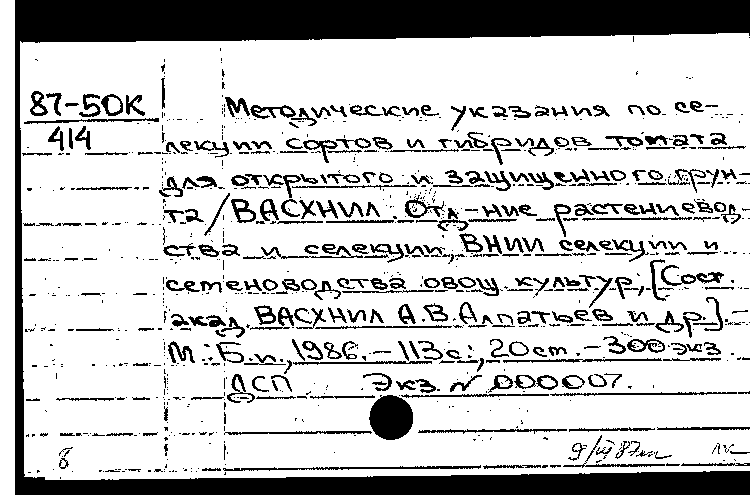 87-50К
414
Методические указания по се-
лекции сортов и гибридов томата
для открытого и защищенного грун-
та / ВАСХНИЛ. Отд-ние растениевод-
ства и селекции, ВНИИ селекции и
семеноводства овощ. культур; [Сост.
акад. ВАСХНИЛ А.В.Алпатьев и др.].-
М.: Б.и., 1986. - 113с.; 20см. - 300экз
ДСП Экз. № 000007.
8